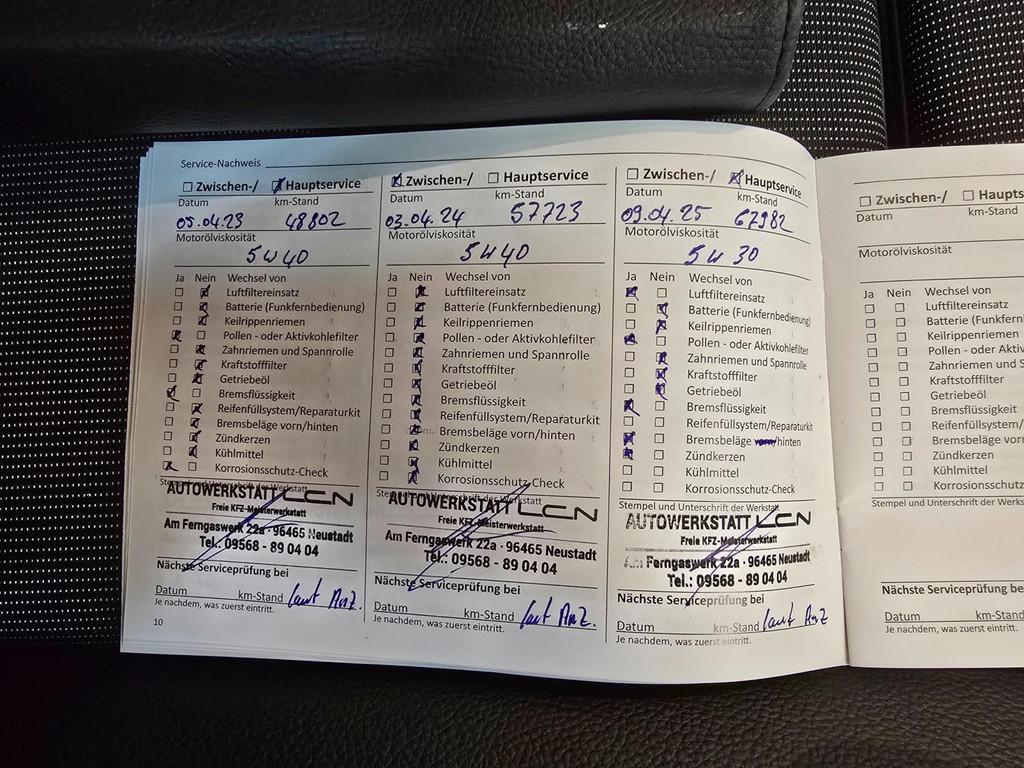 Service-Nachweis
☐ Zwischen-/ ☒ Hauptservice
Datum km-Stand
05.04.23 48802
Motorölviskosität
5W40
Ja Nein Wechsel von
☐ ☒ Luftfiltereinsatz
☐ ☒ Batterie (Funkfernbedienung)
☐ ☒ Keilrippenriemen
☒ ☐ Pollen - oder Aktivkohlefilter
☐ ☒ Zahnriemen und Spannrolle
☐ ☒ Kraftstofffilter
☐ ☒ Getriebeöl
☒ ☐ Bremsflüssigkeit
☐ ☒ Reifenfüllsystem/Reparaturkit
☐ ☒ Bremsbeläge vorn/hinten
☐ ☒ Zündkerzen
☐ ☒ Kühlmittel
☒ ☐ Korrosionsschutz-Check
Stempel und Unterschrift der Werkstatt
AUTOWERKSTATT LCN
Freie KFZ-Meisterwerkstatt
Am Ferngaswerk 22a · 96465 Neustadt
Tel.: 09568 - 89 04 04
Nächste Serviceprüfung bei
Datum km-Stand laut Anz.
Je nachdem, was zuerst eintritt.
10
☒ Zwischen-/ ☐ Hauptservice
Datum km-Stand
03.04.24 57723
Motorölviskosität
5W40
Ja Nein Wechsel von
☐ ☒ Luftfiltereinsatz
☐ ☒ Batterie (Funkfernbedienung)
☐ ☒ Keilrippenriemen
☐ ☒ Pollen - oder Aktivkohlefilter
☐ ☒ Zahnriemen und Spannrolle
☐ ☒ Kraftstofffilter
☐ ☒ Getriebeöl
☐ ☒ Bremsflüssigkeit
☐ ☒ Reifenfüllsystem/Reparaturkit
☐ ☒ Bremsbeläge vorn/hinten
☐ ☒ Zündkerzen
☐ ☒ Kühlmittel
☐ ☒ Korrosionsschutz-Check
Stempel und Unterschrift der Werkstatt
AUTOWERKSTATT LCN
Freie KFZ-Meisterwerkstatt
Am Ferngaswerk 22a · 96465 Neustadt
Tel.: 09568 - 89 04 04
Nächste Serviceprüfung bei
Datum km-Stand laut Anz.
Je nachdem, was zuerst eintritt.
☐ Zwischen-/ ☒ Hauptservice
Datum km-Stand
09.04.25 67982
Motorölviskosität
5W30
Ja Nein Wechsel von
☒ ☐ Luftfiltereinsatz
☐ ☒ Batterie (Funkfernbedienung)
☐ ☒ Keilrippenriemen
☒ ☐ Pollen - oder Aktivkohlefilter
☐ ☒ Zahnriemen und Spannrolle
☐ ☒ Kraftstofffilter
☐ ☒ Getriebeöl
☒ ☐ Bremsflüssigkeit
☐ ☐ Reifenfüllsystem/Reparaturkit
☒ ☐ Bremsbeläge vorn/hinten
☒ ☐ Zündkerzen
☐ ☐ Kühlmittel
☐ ☐ Korrosionsschutz-Check
Stempel und Unterschrift der Werkstatt
AUTOWERKSTATT LCN
Freie KFZ-Meisterwerkstatt
Am Ferngaswerk 22a · 96465 Neustadt
Tel.: 09568 - 89 04 04
Nächste Serviceprüfung bei
Datum km-Stand laut Anz
Je nachdem, was zuerst eintritt.
☐ Zwischen-/ ☐ Haupts
Datum km-Stand
Motorölviskosität
Ja Nein Wechsel von
☐ ☐ Luftfiltereinsatz
☐ ☐ Batterie (Funkfern
☐ ☐ Keilrippenriemen
☐ ☐ Pollen - oder Aktiv
☐ ☐ Zahnriemen und S
☐ ☐ Kraftstofffilter
☐ ☐ Getriebeöl
☐ ☐ Bremsflüssigkeit
☐ ☐ Reifenfüllsystem/
☐ ☐ Bremsbeläge vorn
☐ ☐ Zündkerzen
☐ ☐ Kühlmittel
☐ ☐ Korrosionsschutz-
Stempel und Unterschrift der Werkst
Nächste Serviceprüfung be
Datum km-Stand
Je nachdem, was zuerst eintritt.